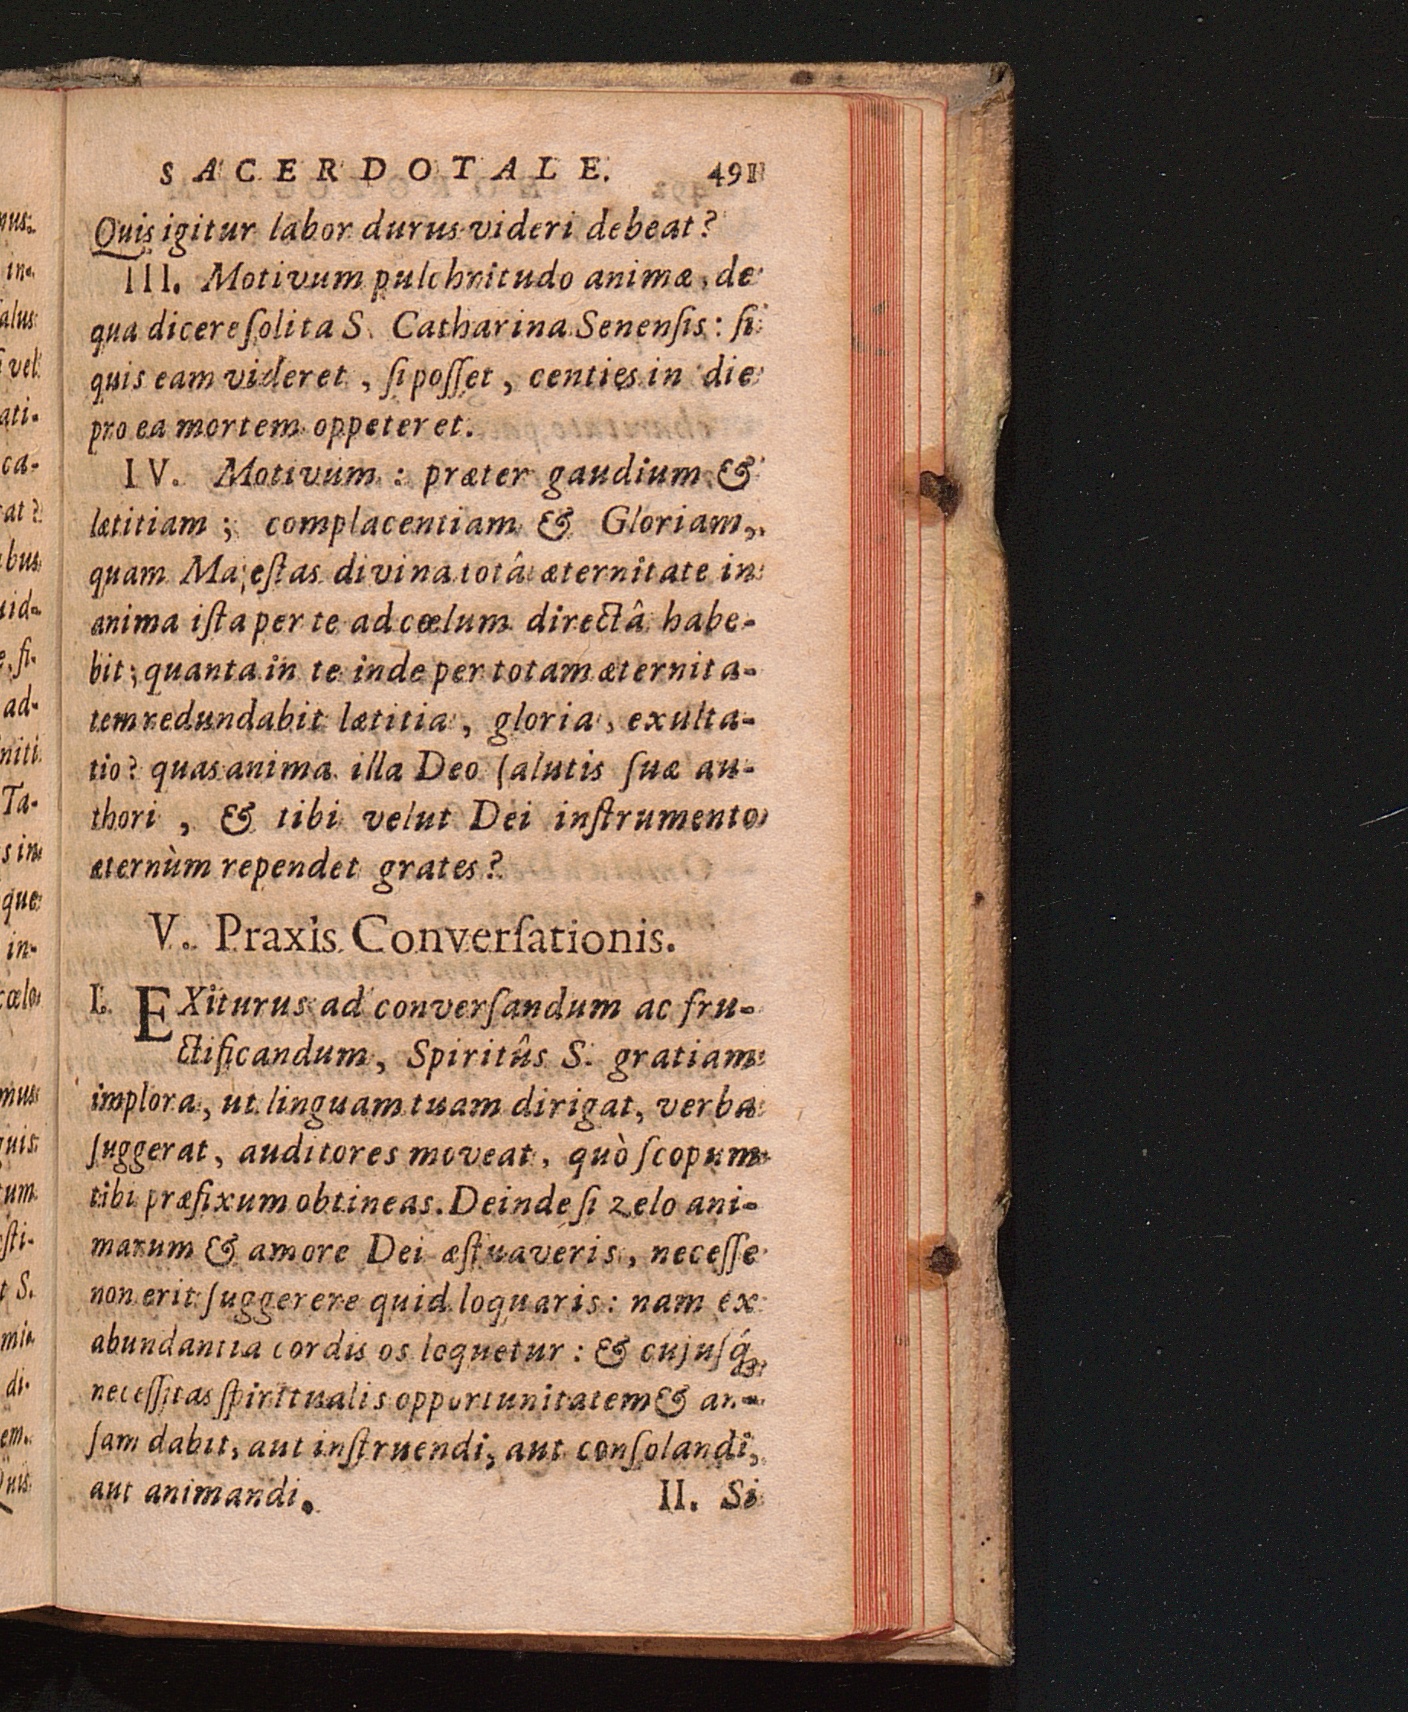 SACERDOTALE. 491
Quis igitur labor durus videri debeat?
III. Motivum pulchritudo animæ, de
qua dicere ſolita S. Catharina Senenſis: ſi
quis eam videret, ſi poſſet, centies in die
pro ea mortem oppeteret.
IV. Motivum: præter gaudium &
lætitiam; complacentiam & Gloriam,
quam Majeſtas divina totâ æternitate in
anima iſta per te ad cœlum directâ habe-
bit; quanta in te inde per totam æternita-
tem redundabit lætitia, gloria, exulta-
tio? quas anima illa Deo ſalutis ſuæ au-
thori, & tibi velut Dei inſtrumento
æternùm rependet grates?
V. Praxis Converſationis.
I. EXiturus ad converſandum ac fru-
ctificandum, Spiritûs S. gratiam
implora, ut linguam tuam dirigat, verba
ſuggerat, auditores moveat, quò ſcopum
tibi præfixum obtineas. Deinde ſi zelo ani-
marum & amore Dei æſtuaveris, neceſſe
non erit ſuggerere quid loquaris: nam ex
abundantia cordis os loquetur: & cujuſq́;
neceſſitas ſpiritualis opportunitatem & an-
ſam dabit, aut inſtruendi, aut conſolandi,
aut animandi. II. Si